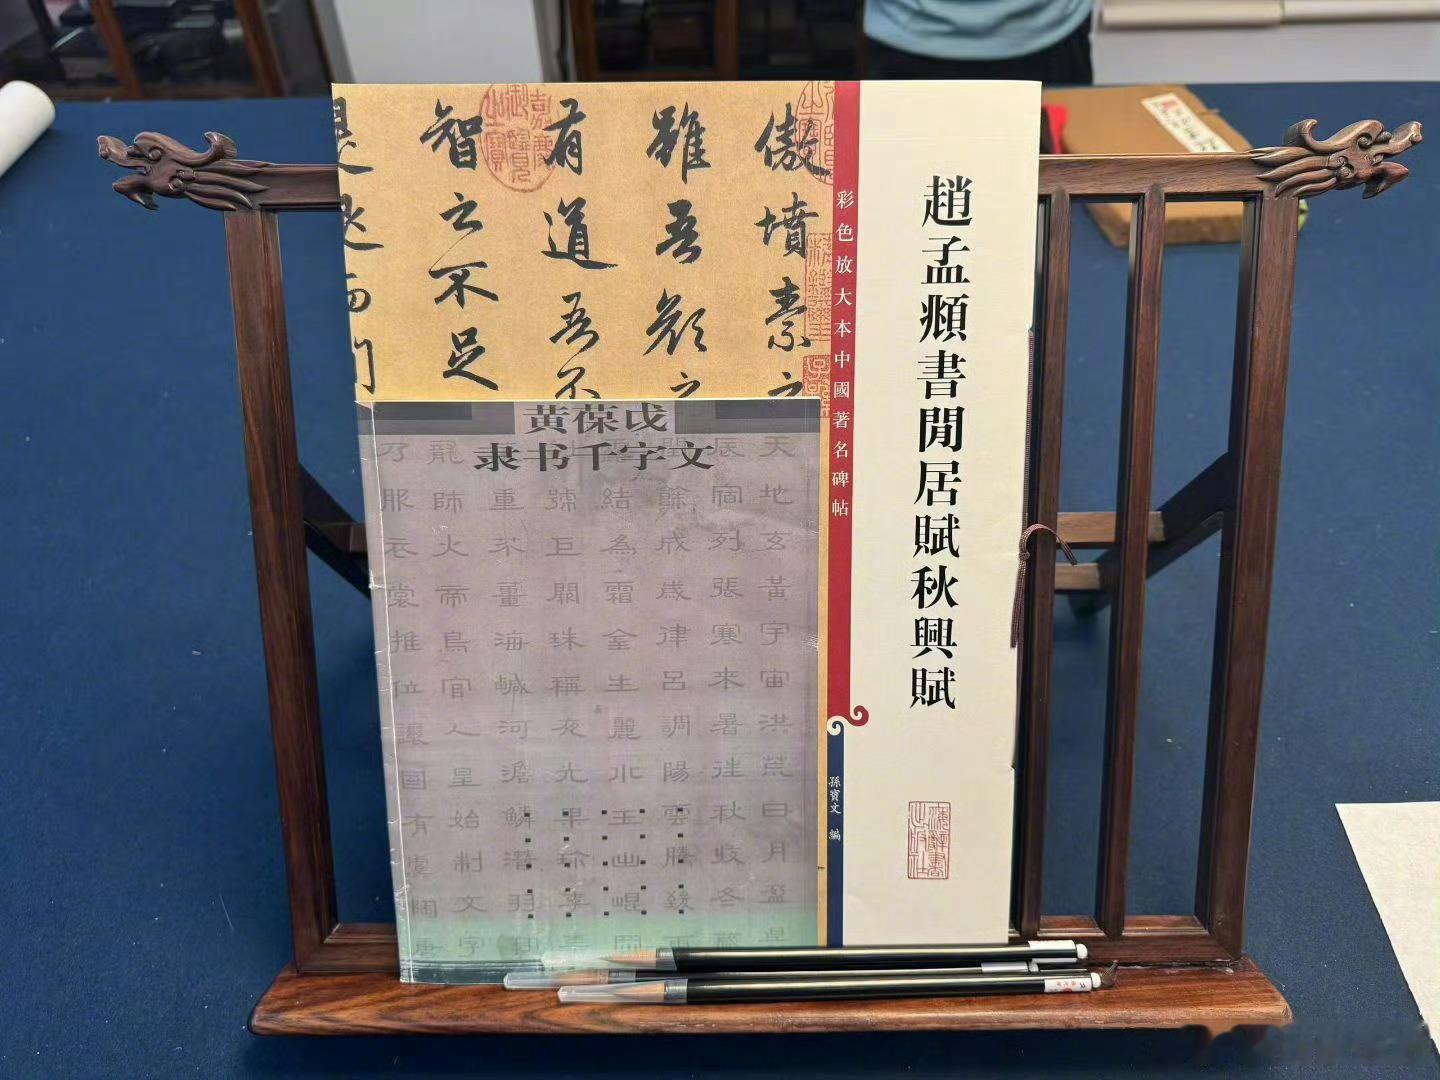 趙孟頫書閒居賦秋興賦
彩色放大本中國著名碑帖
孫寶文 編
傲墳素之
雖吾顏之
有道吾不
智之不足
黄葆戉
隶书千字文
天地玄黃宇宙洪荒日月盈昃
辰宿列張寒來暑往秋收冬藏
閏餘成歲律呂調陽雲騰致雨
結為霜金生麗水玉出崐岡
號巨闕珠稱夜光果珍李柰
重芥薑海鹹河澹鱗潛羽翔
龍師火帝鳥官人皇始制文字
乃服衣裳推位讓國有虞陶唐